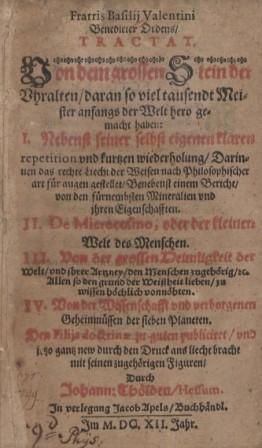 Fratris Basilij Valentini
Benedicter Ordens/
TRACTAT,
Von dem grossen Stein der
Vhralten/ daran so viel tausendt Mei-
ster anfangs der Welt hero ge-
macht haben:
I. Nebenst seiner selbst eigenen klaren
repetition vnd kurtzen wiederholung/ Darin-
nen das rechte Liecht der Weisen nach Philosophischer
art für augen gestellet/ Benebenst einem Bericht/
von den fürnembsten Mineralien vnd
jhren Eigenschafften.
II. De Microcosmo, oder der kleinen
Welt des Menschen.
III. Von der grossen Heimligkeit der
Welt/ vnd jhrer Artzney/ den Menschen zugehörig/ ꝛc.
Allen so den grund der Weißheit lieben/ zu
wissen höchlich vonnöhten.
IV. Von der Wissenschafft vnd verborgenen
Geheimnüssen der sieben Planeten.
Den Filijs doctrinæ zu guten publiciret/ vnd
j.zo gantz new durch den Druck ans liecht bracht
mit seinen zugehörigen Figuren/
Durch
Johann: Thölden/ Hessum.
In verlegung Jacob Apels/ Buchhändl.
Im M DC. XII. Jahr.
Phys.